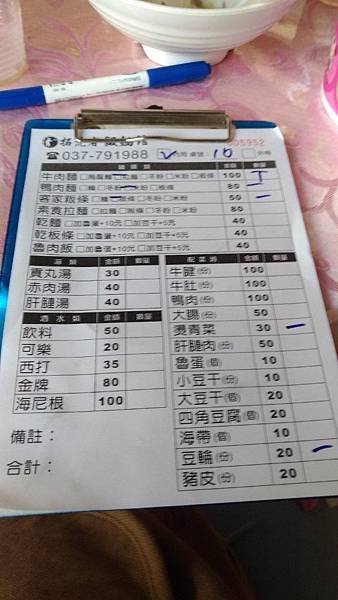 拓老爺飯麵館 005952
037-791988 ✓內用 桌號：10 □外帶
麵類 金額 數量
牛肉麵 □烏龍麵 □拉麵 □冬粉 □米粉 □粄條 100 丅
鴨肉麵 □麵 □冬粉 □米粉 □粄條 80
客家粄條 □麵 □冬粉 □米粉 50 一
素食拉麵 □拉麵 □粄條 □冬粉 □米粉 80
乾麵 □加魯蛋+10元 □加豆干+5元 40
乾粄條 □加魯蛋+10元 □加豆干+5元 40
魯肉飯 □加魯蛋+10元 □加豆干+5元 40
湯類 金額 數量
貢丸湯 30
赤肉湯 40
肝膗湯 40
酒水類 金額 數量
飲料 50
可樂 20
西打 35
金牌 80
海尼根 100
備註：
合計：
配菜類 金額 數量
牛腱(份) 100
牛肚(份) 100
鴨肉(份) 100
大腸(份) 50
燙青菜 30 一
肝膗肉(份) 50
魯蛋(個) 10
小豆干(個) 10
大豆干(個) 20
四角豆腐(個) 20
海帶(個) 10
豆輪(份) 20 一
豬皮(份) 20